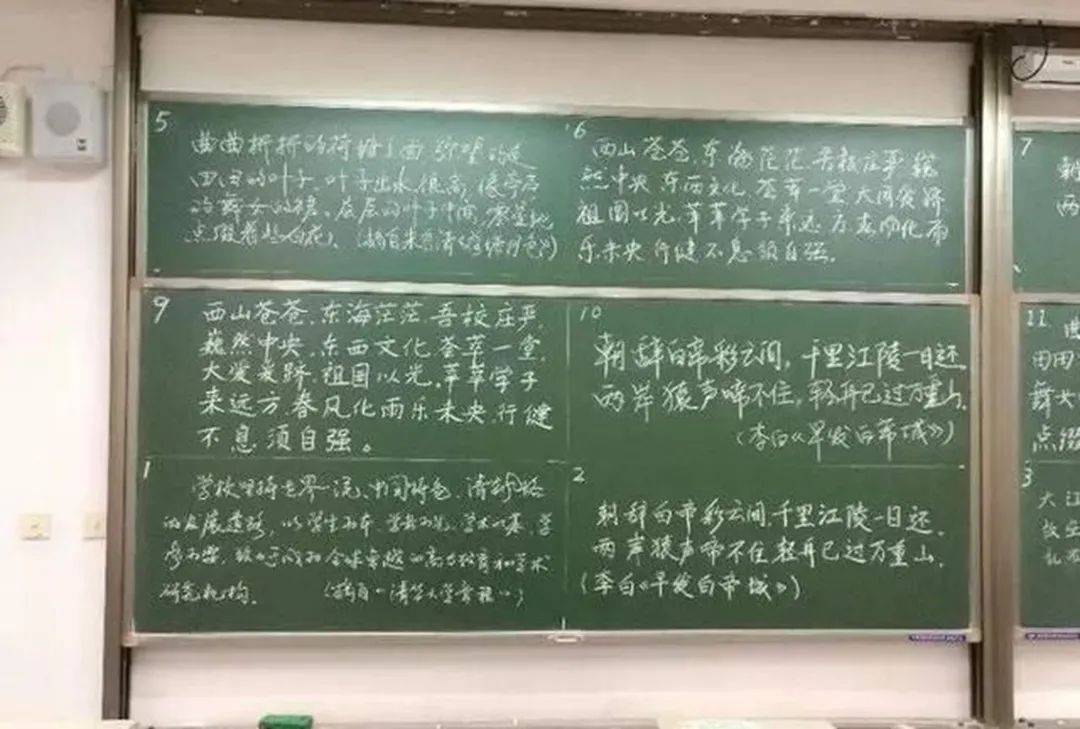 5
曲曲折折的荷塘上面,弥望的是
田田的叶子,叶子出水很高,像亭亭
的舞女的裙。层层的叶子中间,零星地
点缀着些白花,(摘自朱自清《荷塘月色》)
6
西山苍苍,东海茫茫,吾校庄严,巍
然中央,东西文化,荟萃一堂,大同爰跻
祖国以光,莘莘学子来远方,春风化雨
乐未央,行健不息须自强。
9
西山苍苍,东海茫茫,吾校庄严,
巍然中央,东西文化,荟萃一堂,
大爱爰跻,祖国以光,莘莘学子
来远方,春风化雨乐未央,行健
不息须自强。
10
朝辞白帝彩云间,千里江陵一日还
两岸猿声啼不住,轻舟已过万重山。
(李白《早发白帝城》)
1
学校坚持世界一流、中国特色、清华风格
的发展道路,以学生为本、学者为先、学术为
研究机构。(摘自“清华大学章程”)
2
朝辞白帝彩云间,千里江陵一日还。
两声猿声啼不住,轻舟已过万重山。
(李白《早发白帝城》)
7
朝
两
11
曲
田田
舞女
点缀
3
大江
故垒
乱石